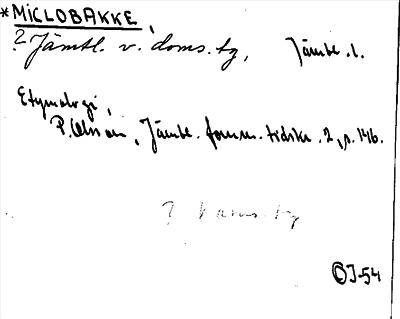 *MICLOBAKKE,
? Jämtl. v. doms. tg, Jämtl. l.
Etymologi,
P. Olsson, Jämtl. fornm. tidskr. 2, s. 146.
OJ-54